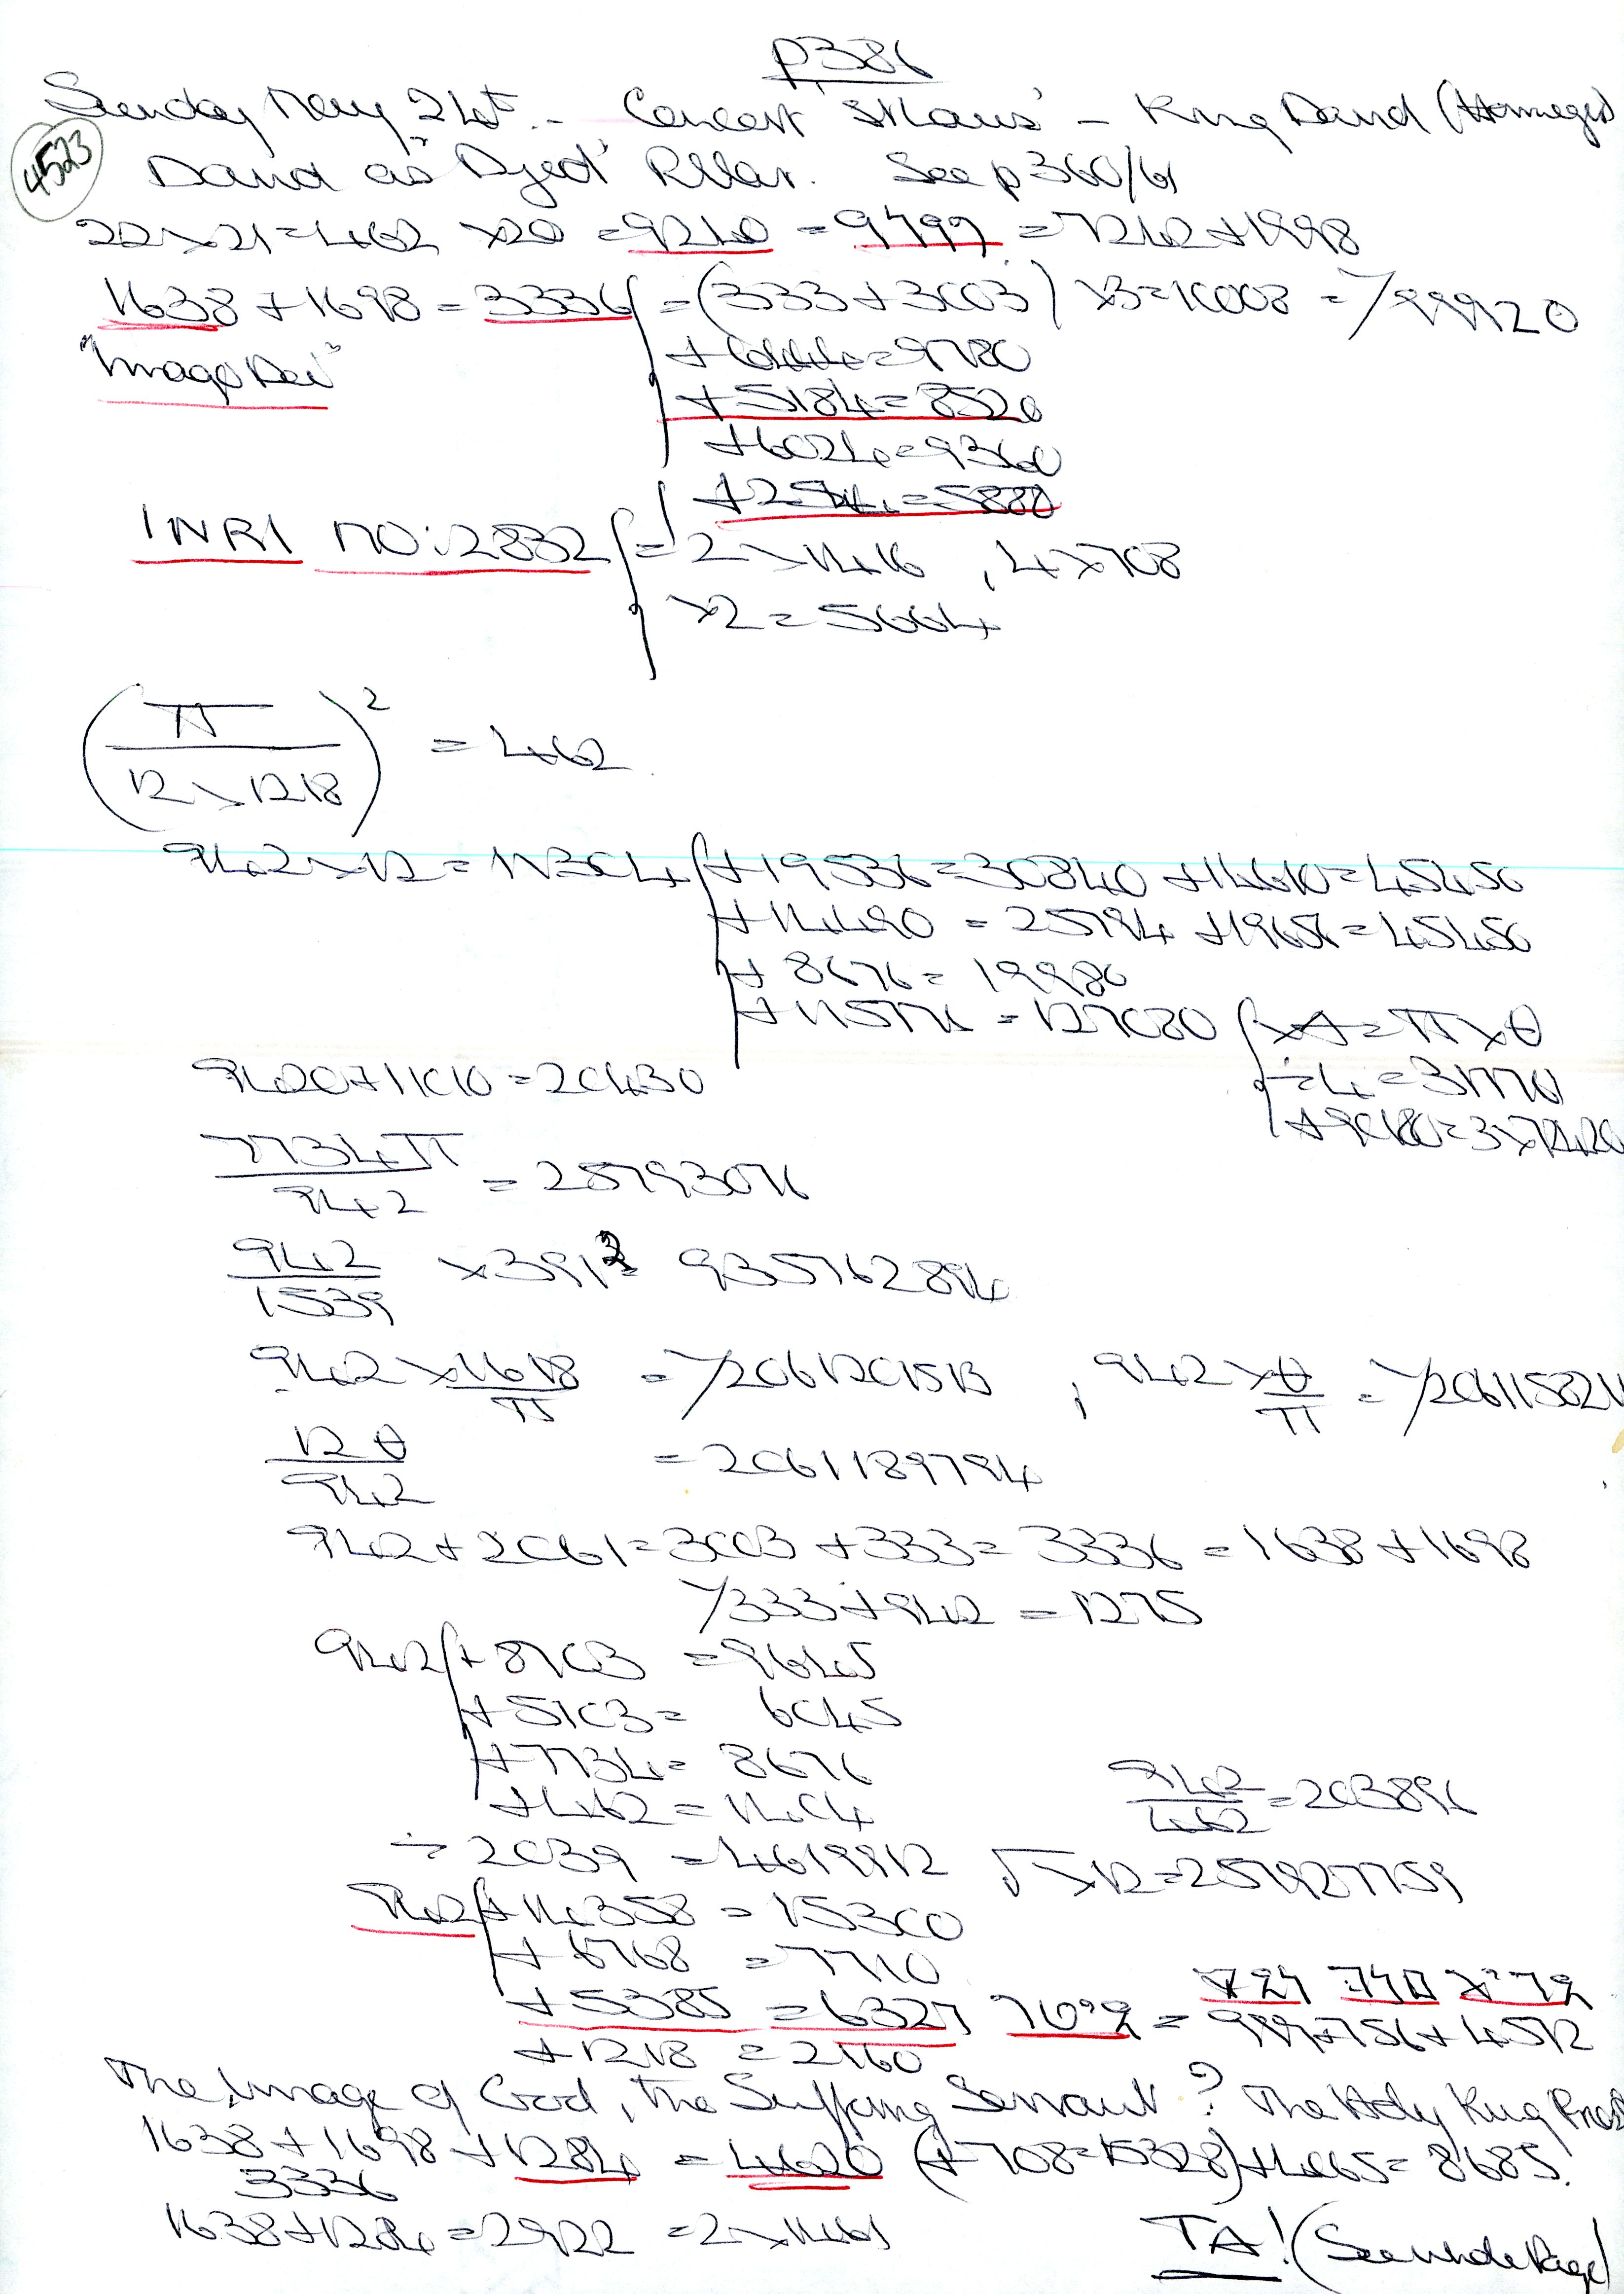 p386
Sunday May 21st. - Concert St Mary's - King David (Honneger)
4523
David as "Djed" Pillar. See p360/61
22 x 21 = 462 x20 = 9240 = = 7242 + 1998
1638 + 1698 = 3336 = (333 + 3003) x3 = 10008 = 1/99920
"Imago Dei"
+ 6444 = 9780
+ 5184 = 8520
+ 6024 = 9360
+ 2544 = 5880
INRI NO: 2832 = 2 x 1416, 4 x 708
x2 = 5664
(π / 12 x 1218)² = 462
942 x 12 = 11304 + 19536 = 30840 + 14610 = 45450
+ 14490 = 25794 + 19656 = 45450
+ 8676 = 19980
+ 115776 = 127080 = π x θ
÷ 4 = 31770
9420 + 11010 = 20430
7734π / 942 = 25793076
942 / 1539 x 391² 935762894
942 x 11618 / π = 1/2061201513 , 942 x θ / π = 1/206115821
12 θ / 942 = 2061189794
942 + 2061 = 3003 + 333 = 3336 = 1638 + 1698
1/333 + 942 = 1275
942 + 8703 = 9645
+ 5103 = 6045
+ 7734 = 8676
+ 462 = 1404
942 / 462 = 203896
÷ 2039 = 4619912 √ x 12 = 257927759
942 + 14358 = 15300
+ 6768 = 7710
+ 5385 = 6327
+ 1218 = 2160
The Image of God, the Suffering Servant? The Holy King Priest
1638 + 1698 + 1284 = 4620 (+ 708 = 5328) + 4065 = 8685.
3336
1638 + 1284 = 2922 = 2 x 1461
TA! (See whole Page)